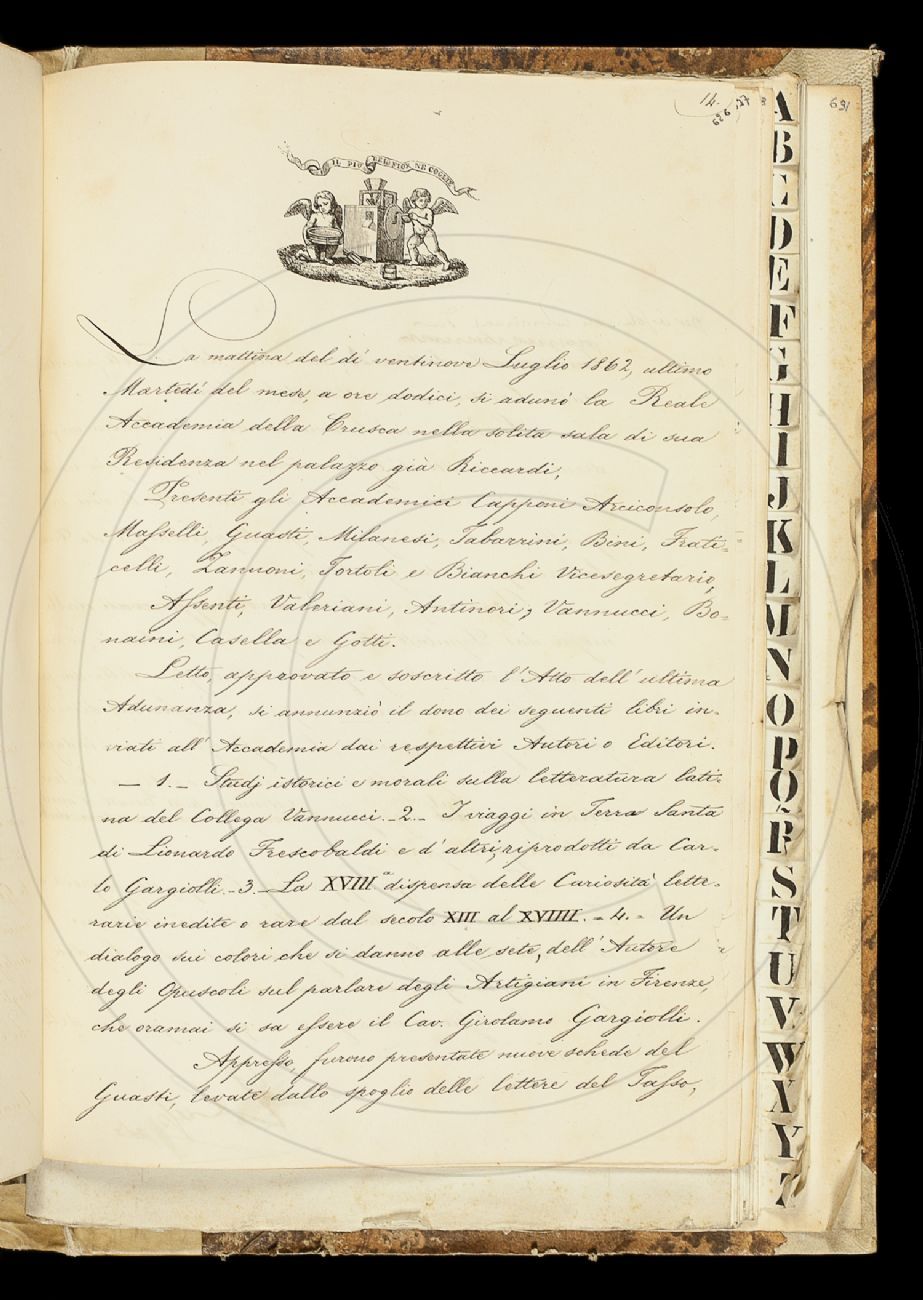 14.
691
IL PIÙ BEL FIOR NE COGLIE
La mattina del dì ventinove Luglio 1862, ultimo
Martedì del mese, a ore dodici, si adunò la Reale
Accademia della Crusca nella solita sala di sua
Residenza nel palazzo già Riccardi,
Presenti gli Accademici Capponi Arciconsolo,
Masselli, Guasti, Milanesi, Tabarrini, Bini, Frati-
celli, Zannoni, Tortoli e Bianchi Vicesegretario,
Assenti, Valeriani, Antinori, Vannucci, Bo-
naini, Casella e Gotti.
Letto, approvato e soscritto l'Atto dell'ultima
Adunanza, si annunziò il dono dei seguenti libri in-
viati all'Accademia dai respettivi Autori o Editori.
— 1. — Studj istorici e morali sulla letteratura lati-
na del Collega Vannucci. — 2. — I viaggi in Terra Santa
di Lionardo Frescobaldi e d'altri, riprodotti da Car-
lo Gargiolli — 3. — La XVIIIª dispensa delle Curiosità lette-
rarie inedite o rare dal secolo XIII al XVIIII. — 4. — Un
dialogo sui colori che si danno alle sete, dell'Autore
degli Opuscoli sul parlare degli Artigiani in Firenze,
che oramai si sa essere il Cav. Girolamo Gargiolli.
Appresso, furono presentate nuove schede del
Guasti, levate dallo spoglio delle lettere del Tasso,
A
B
C
D
E
F
G
H
I
J
K
L
M
N
O
P
Q
R
S
T
U
V
W
X
Y
Z